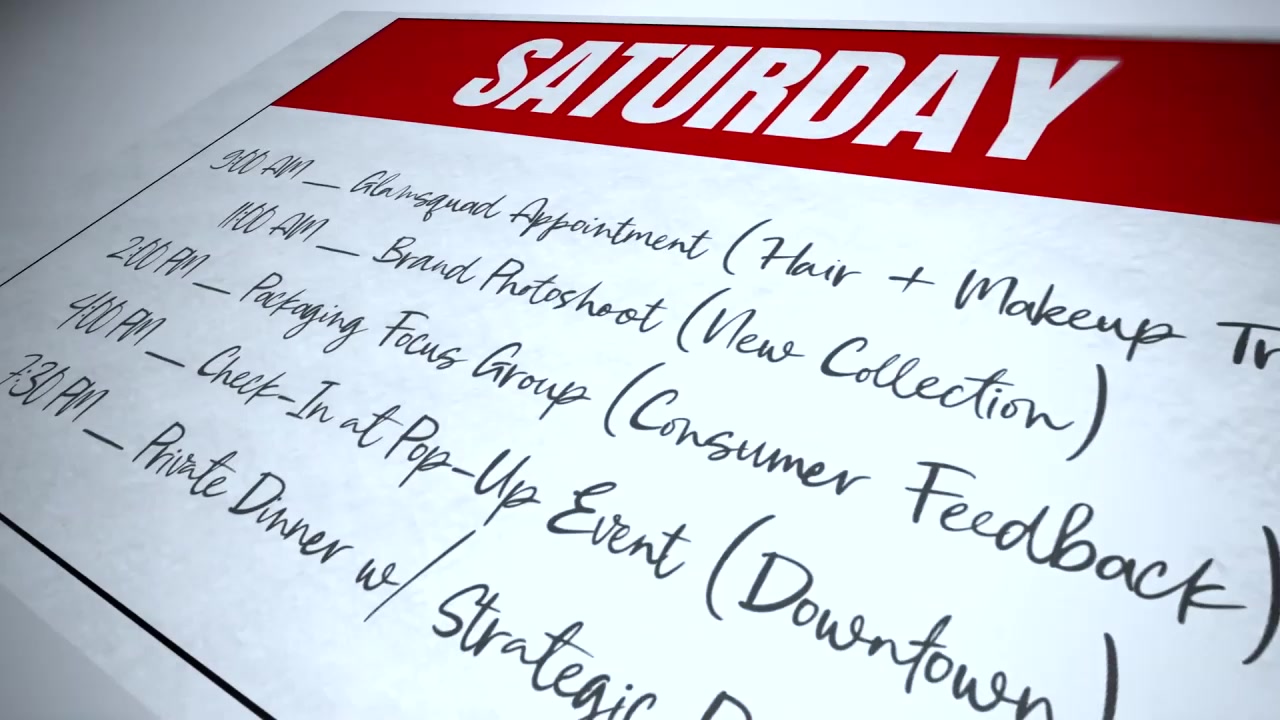 SATURDAY
9:00 AM — Glamsquad Appointment (Hair + Makeup
11:00 AM — Brand Photoshoot (New Collection)
2:00 PM — Packaging Focus Group (Consumer Feedback)
4:00 PM — Check-In at Pop-Up Event (Downtown)
7:30 PM — Private Dinner w/ Strategic